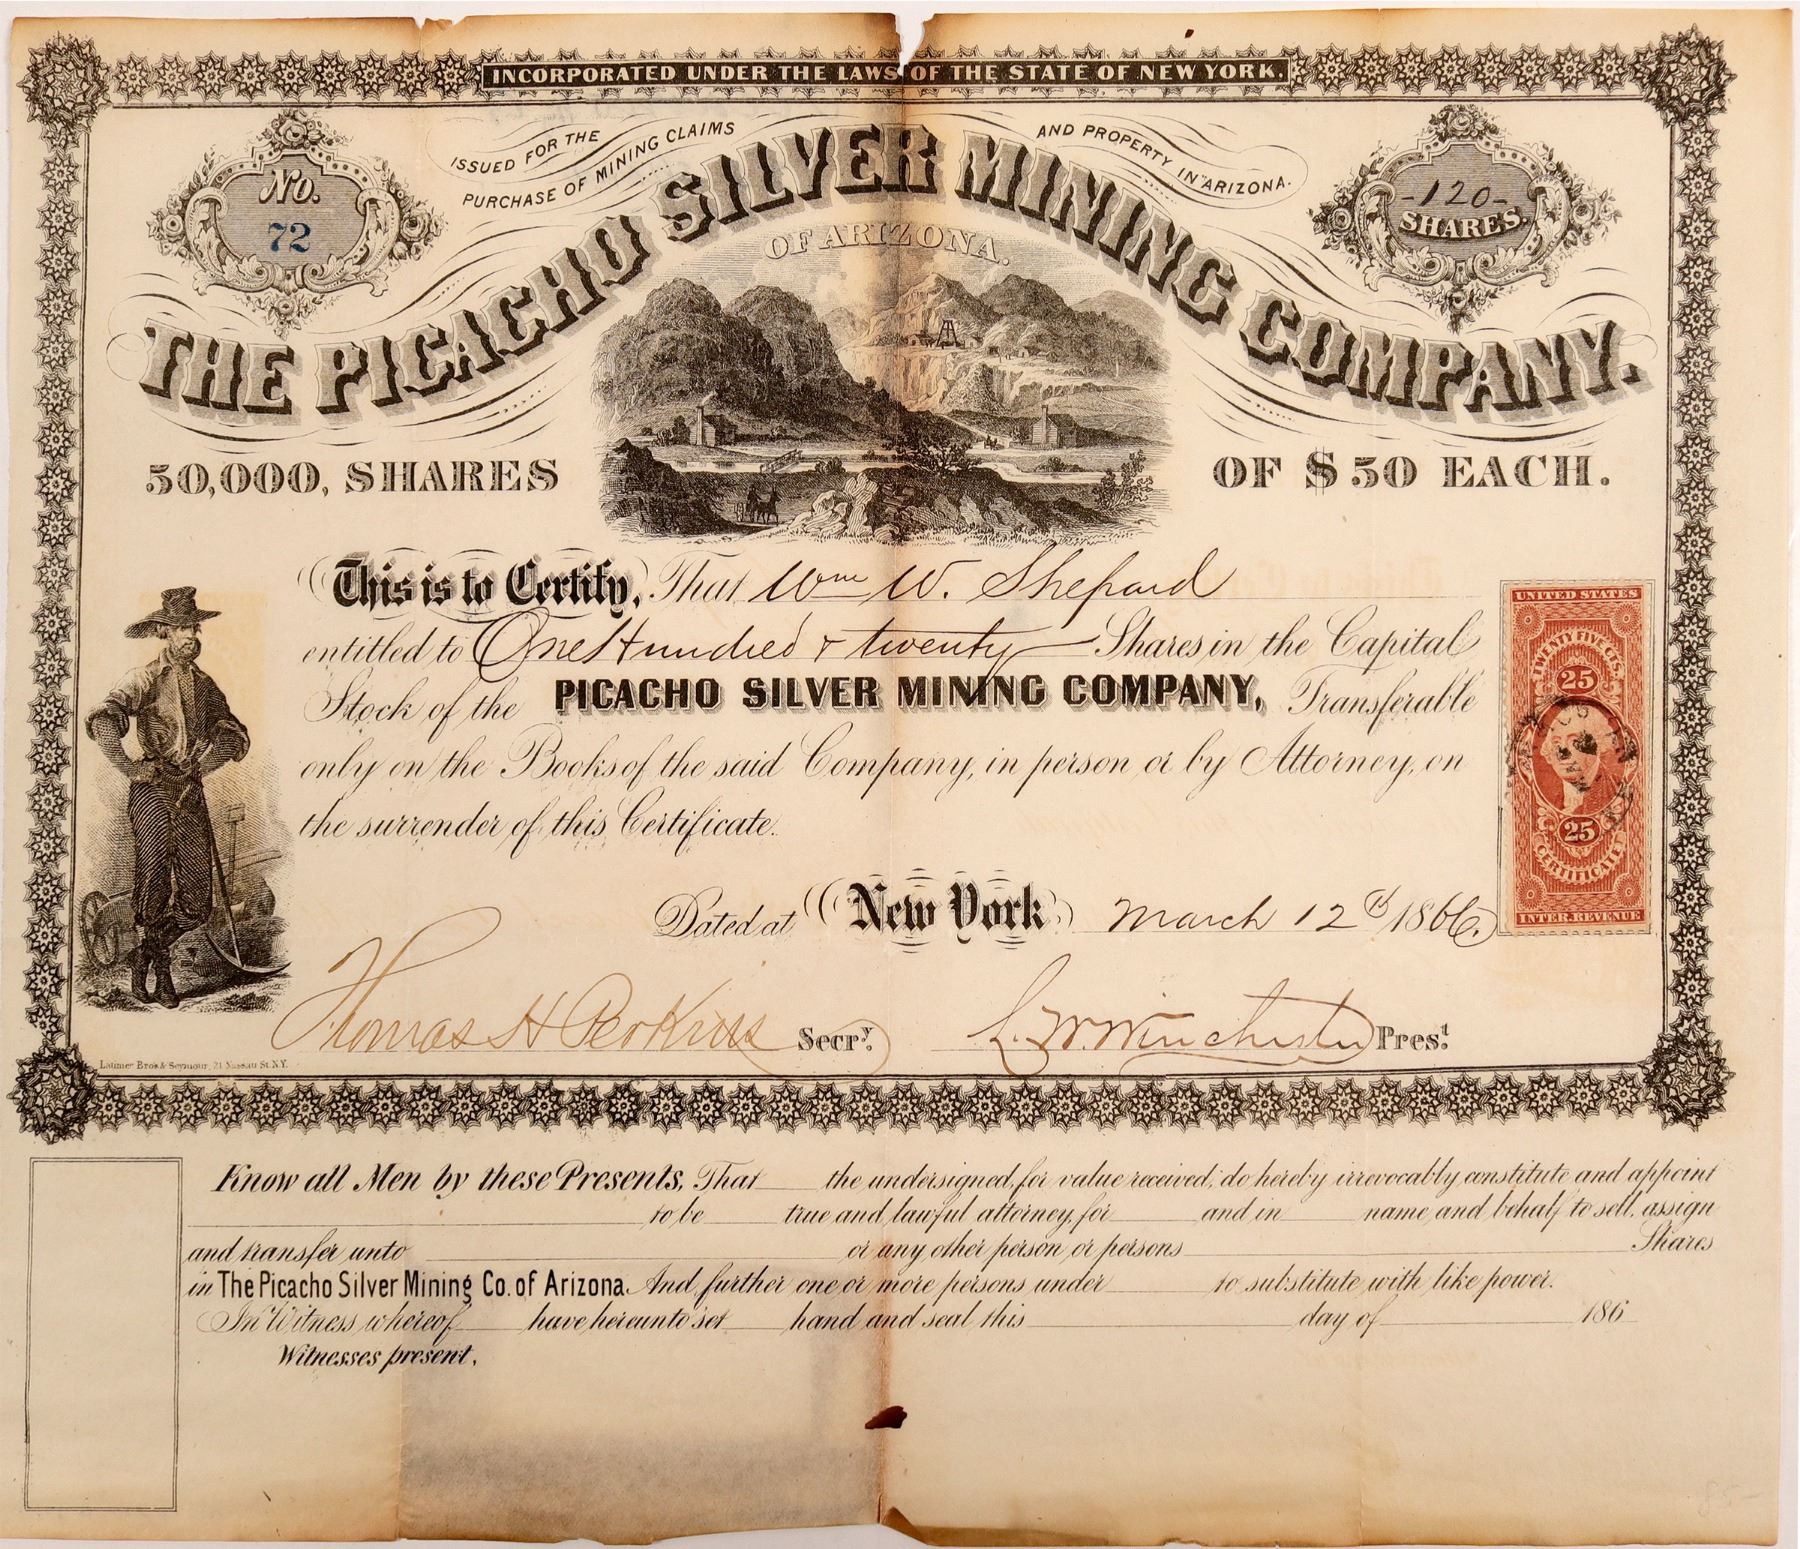 INCORPORATED UNDER THE LAWS OF THE STATE OF NEW YORK.
ISSUED FOR THE PURCHASE OF MINING CLAIMS AND PROPERTY IN ARIZONA.
No. 72
-120- SHARES.
THE PICACHO SILVER MINING COMPANY.
OF ARIZONA.
50,000, SHARES OF $50 EACH.
This is to Certify, That Wm W. Shepard
entitled to One Hundred & twenty Shares in the Capital
Stock of the PICACHO SILVER MINING COMPANY, Transferable
only on the Books of the said Company, in person or by Attorney, on
the surrender of this Certificate.
UNITED STATES
TWENTY FIVE CTS.
25
25
CERTIFICATE
INTER. REVENUE
Dated at New York March 12th 1866.
Thomas H Perkins Secry. L. W. Winchester Prest.
Latimer Bros & Seymour, 21 Nassau St. N.Y.
Know all Men by these Presents, That the undersigned, for value received, do hereby irrevocably constitute and appoint
to be true and lawful attorney, for and in name and behalf to sell, assign
and transfer unto or any other person or persons Shares
in The Picacho Silver Mining Co. of Arizona. And further one or more persons under to substitute with like power.
In Witness whereof have hereunto set hand and seal this day of 186
Witnesses present,
85-